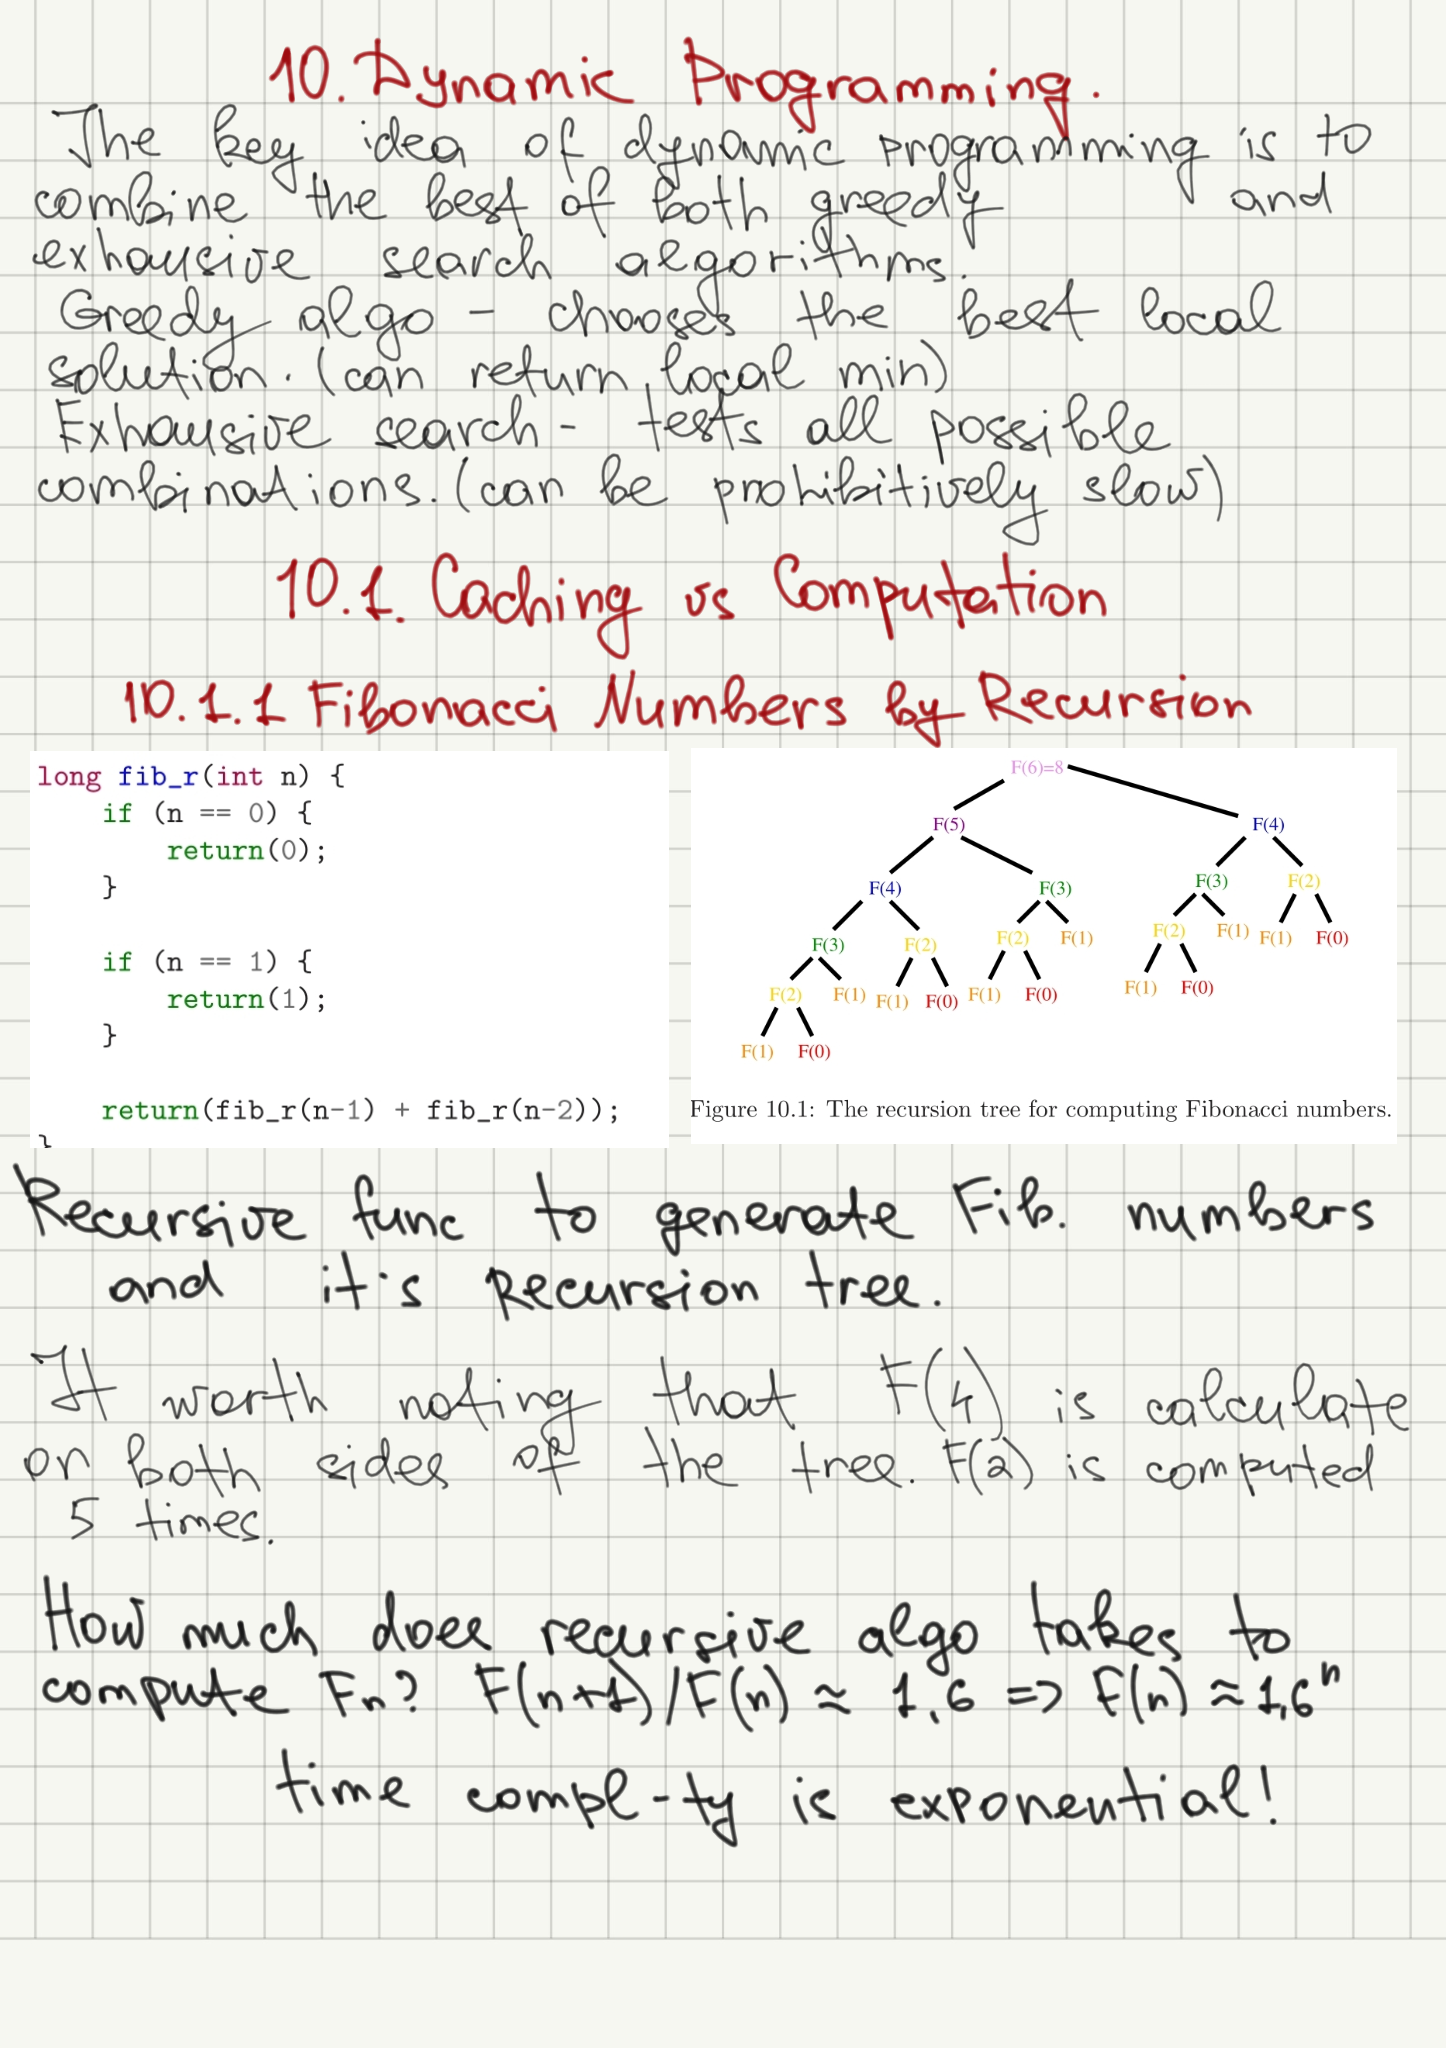 10. Dynamic Programming.
The key idea of dynamic programming is to
combine the best of both greedy and
exhausive search algorithms.
Greedy algo - chooses the best local
solution. (can return local min)
Exhausive search - tests all possible
combinations. (can be prohibitively slow)
10.1. Caching vs Computation
10.1.1 Fibonacci Numbers by Recursion
long fib_r(int n) {
if (n == 0) {
return(0);
}
if (n == 1) {
return(1);
}
return(fib_r(n-1) + fib_r(n-2));
}
F(6)=8
F(5) F(4)
F(4) F(3) F(3) F(2)
F(3) F(2) F(2) F(1) F(2) F(1) F(1) F(0)
F(2) F(1) F(1) F(0) F(1) F(0) F(1) F(0)
F(1) F(0)
Figure 10.1: The recursion tree for computing Fibonacci numbers.
Recursive func to generate Fib. numbers
and it's recursion tree.
It worth noting that F(4) is calculate
on both sides of the tree. F(2) is computed
5 times.
How much does recursive algo takes to
compute Fn? F(n+1)/F(n) ≈ 1,6 => F(n) ≈ 1,6ⁿ
time compl-ty is exponential!